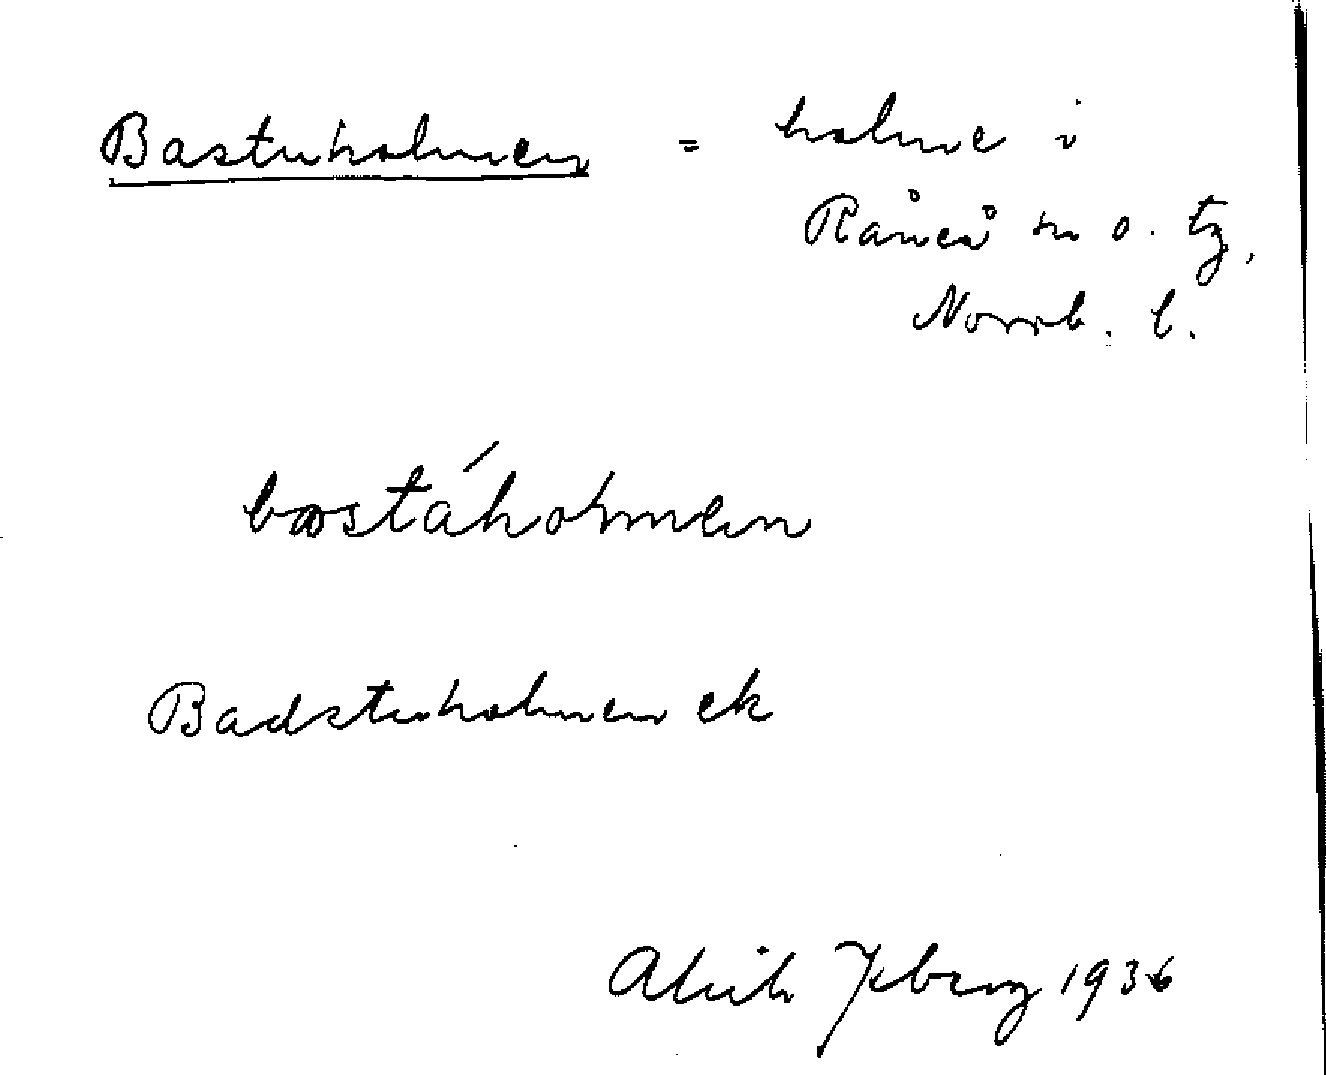 Bastuholmen = holme i
Råneå sn o. tg,
Norrb. l.
bastáholmen
Badstuholmen ek
1936